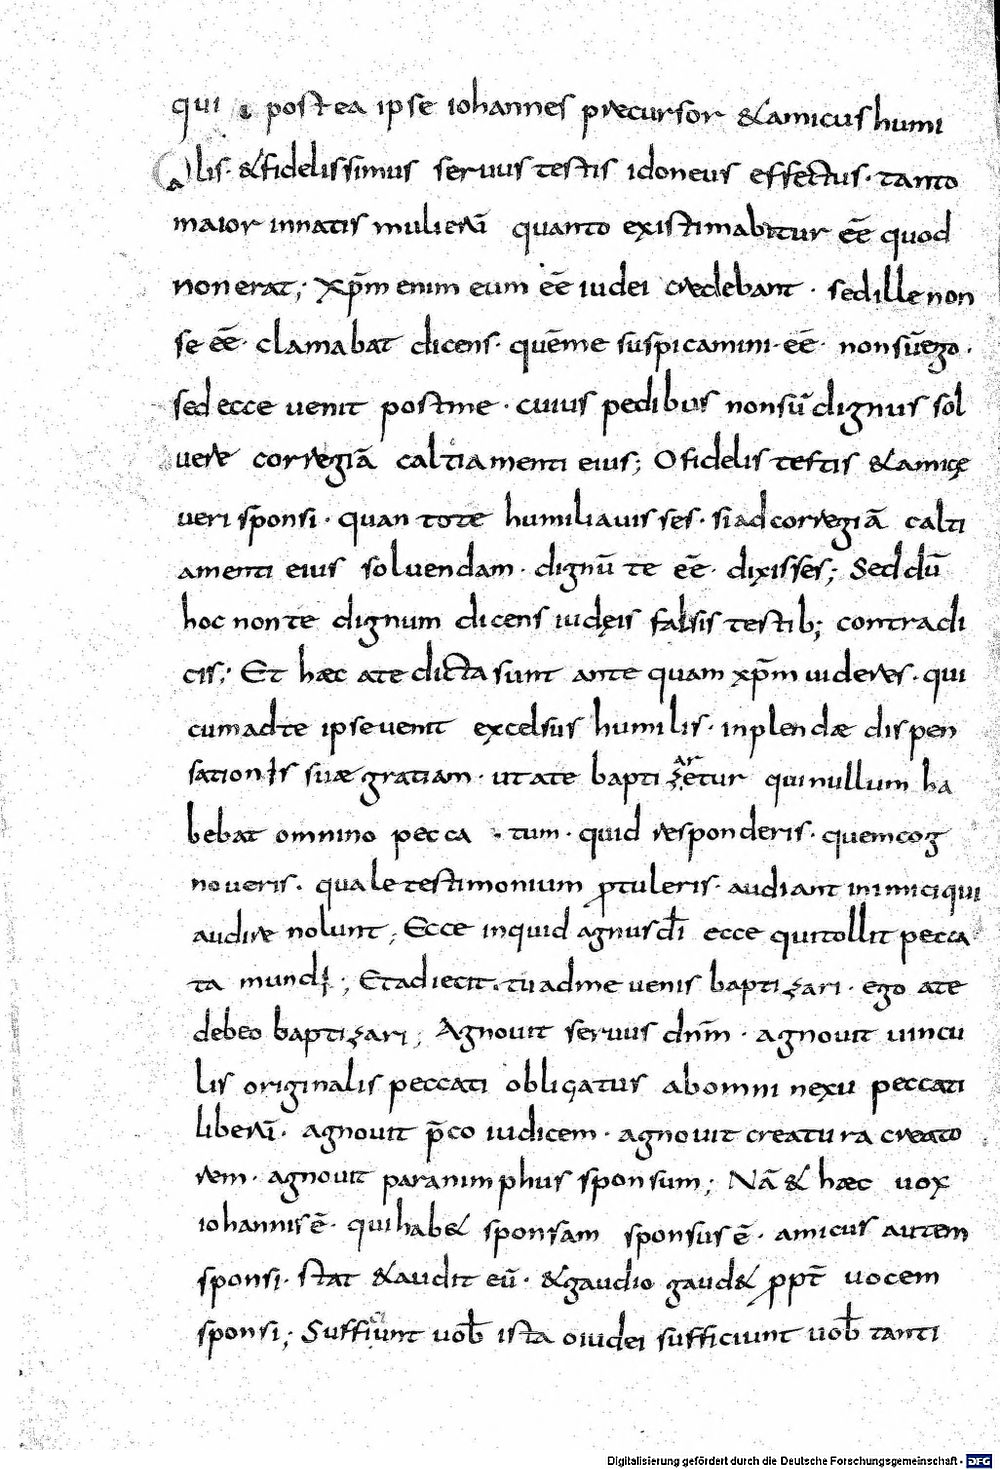 qui postea ipse iohannes precursor &amicus humi
lis· &fidelissimus seruus testis idoneus effectus· tanto
maior innatis mulierū quanto existimabitur eē quod
non erat; xp̄m enim eum eē iudei credebant · sed ille non
se eē· clamabat dicens· quēme suspicamini· eē· nonsūego·
sed ecce uenit postme · cuius pedibus nonsū dignus sol
uere corregiā caltiamenti eius; O fidelis testis &amicę
ueri sponsi · quan tote humiliauisses· siadcorregiā calti
amenti eius soluendam · dignū te eē· dixisses; Sed dū
hoc nonte dignum dicens iudęis falsis testib; contradi
cis; Et hæc ate dicta sunt ante quam xp̄m uideres · qui
cum adte ipse uenit excelsus humilis· inplendæ dispen
sationis suæ gratiam · ut ate baptizaretur qui nullum ha
bebat omnino pecca tum · quid responderis· quemcog
noueris· quale testimonium ꝓtuleris· audiant inimici qui
audire nolunt; Ecce inquid agnus dī ecce qui tollit pecca
ta mundi; Et adiecit· tu adme uenis baptizari · ego ate
debeo baptizari; Agnouit seruus dnm̄ · agnouit uincu
lis originalis peccati obligatus abomni nexu peccati
liberū· agnouit p̄co iudicem · agnouit creatura creato
rem · agnouit paranimphus sponsum; Nā & hæc uox
iohannis ē· qui hab& sponsam sponsus ē· amicus autem
sponsi· stat &audit eū· &gaudio gaud& ꝓpt̄ uocem
sponsi; Suffiunt uob̄ ista oiudei sufficiunt uob̄ tanti
Digitalisierung gefördert durch die Deutsche Forschungsgemeinschaft - DFG